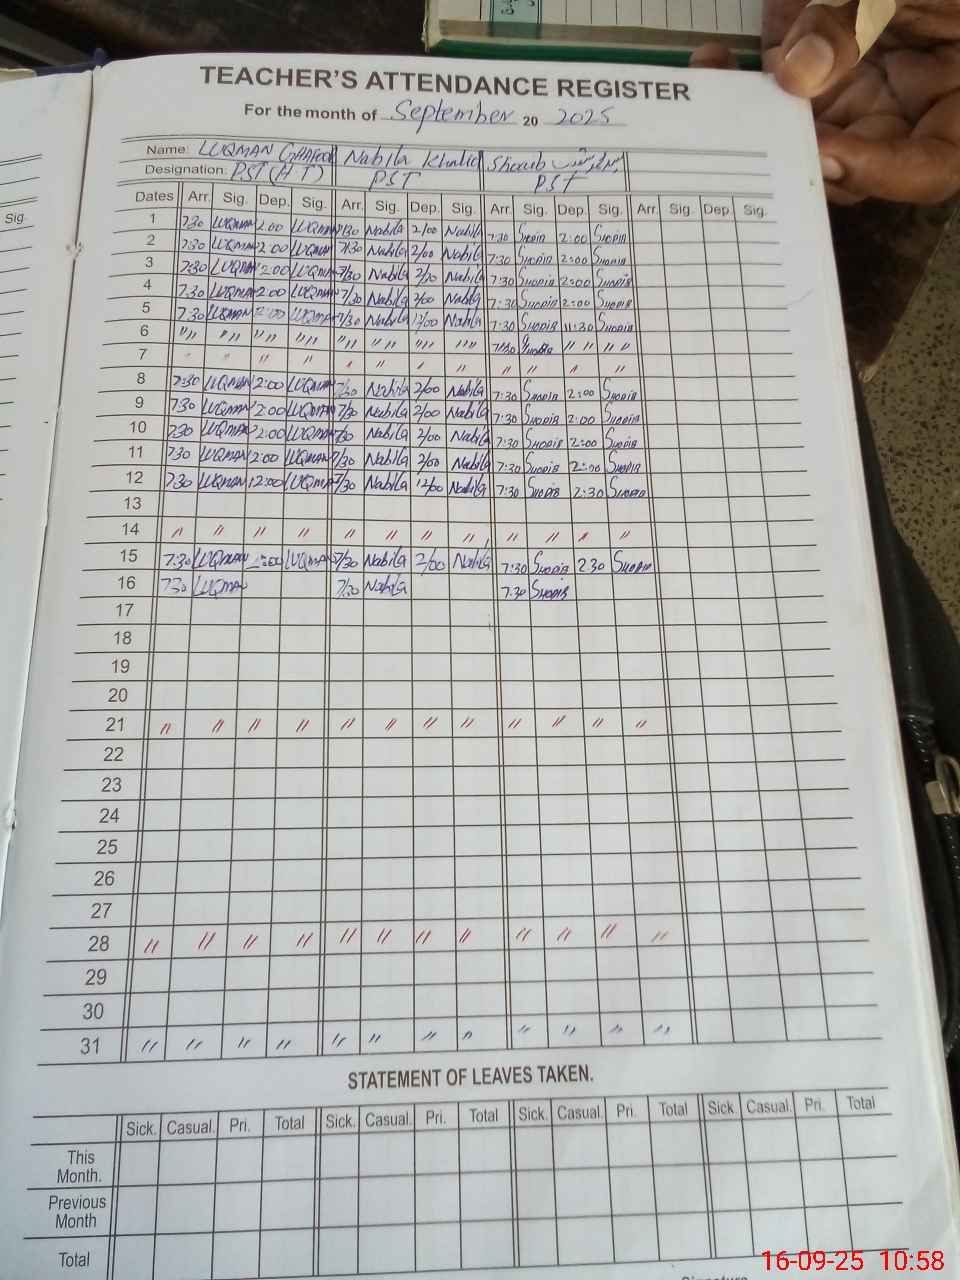 TEACHER'S ATTENDANCE REGISTER
For the month of September 20 2025
Name: LUQMAN GHAFOOR Nabila Khalid Shoaib
Designation: PST (H T) PST PST
Sig. Dates Arr. Sig. Dep. Sig. Arr. Sig. Dep. Sig. Arr. Sig. Dep. Sig. Arr. Sig. Dep. Sig.
1 7:30 LUQMAN 2:00 LUQMAN 7/30 Nabila 2/00 Nabila 7:30 Shoaib 2:00 Shoaib
2 7:30 LUQMAN 2:00 LUQMAN 7/30 Nabila 2/00 Nabila 7:30 Shoaib 2:00 Shoaib
3 7:30 LUQMAN 2:00 LUQMAN 7/30 Nabila 2/00 Nabila 7:30 Shoaib 2:00 Shoaib
4 7:30 LUQMAN 2:00 LUQMAN 7/30 Nabila 2/00 Nabila 7:30 Shoaib 2:00 Shoaib
5 7:30 LUQMAN LUQMAN 7/30 Nabila 12/00 Nabila 7:30 Shoaib 11:30 Shoaib
6 " " " " " " " " 7:30 Shoaib " "
7 " " " " " " " " " " " "
8 7:30 LUQMAN 2:00 LUQMAN 7/30 Nabila 2/00 Nabila 7:30 Shoaib 2:00 Shoaib
9 7:30 LUQMAN 2:00 LUQMAN 7/30 Nabila 2/00 Nabila 7:30 Shoaib 2:00 Shoaib
10 7:30 LUQMAN 2:00 LUQMAN 7/30 Nabila 2/00 Nabila 7:30 Shoaib 2:00 Shoaib
11 7:30 LUQMAN 2:00 LUQMAN 7/30 Nabila 2/00 Nabila 7:30 Shoaib 2:00 Shoaib
12 7:30 LUQMAN 12:00 LUQMAN 7/30 Nabila 12/00 Nabila 7:30 Shoaib 2:30 Shoaib
13
14 " " " " " " " " " " " "
15 7:30 LUQMAN 2:00 LUQMAN 7/30 Nabila 2/00 Nabila 7:30 Shoaib 2:30 Shoaib
16 7:30 LUQMAN 7/30 Nabila 7:30 Shoaib
17
18
19
20
21 " " " " " " " " " " " "
22
23
24
25
26
27
28 " " " " " " " " " " " "
29
30
31 " " " " " " " " " " " "
STATEMENT OF LEAVES TAKEN.
Sick. Casual. Pri. Total Sick. Casual. Pri. Total Sick. Casual. Pri. Total Sick. Casual. Pri. Total
This
Month.
Previous
Month
Total
16-09-25 10:58